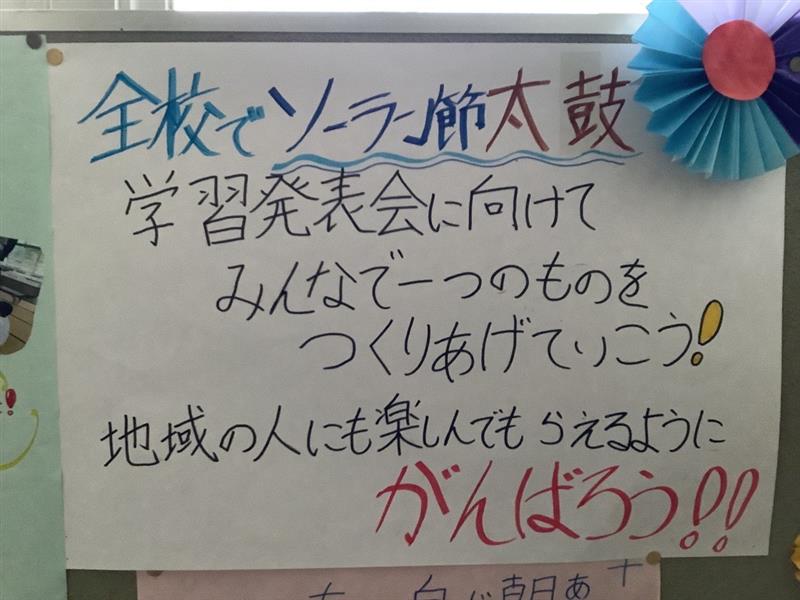 全校でソーラン節太鼓
学習発表会に向けて
みんなで一つのものを
つくりあげていこう!
地域の人にも楽しんでもらえるように
がんばろう!!